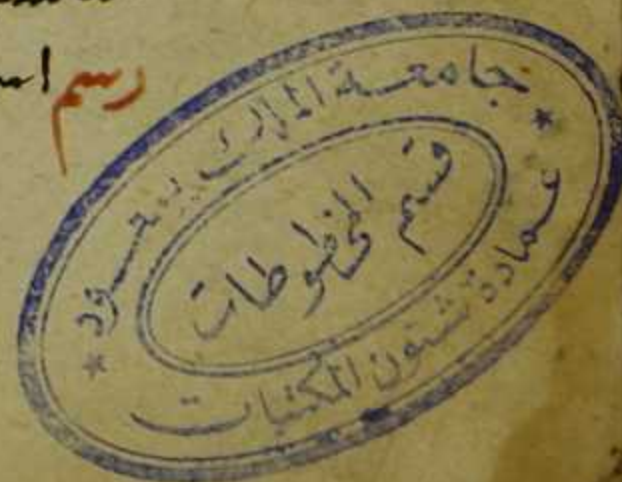 رسم
جامعة الملك سعود
قسم المخطوطات
عمادة شئون المكتبات